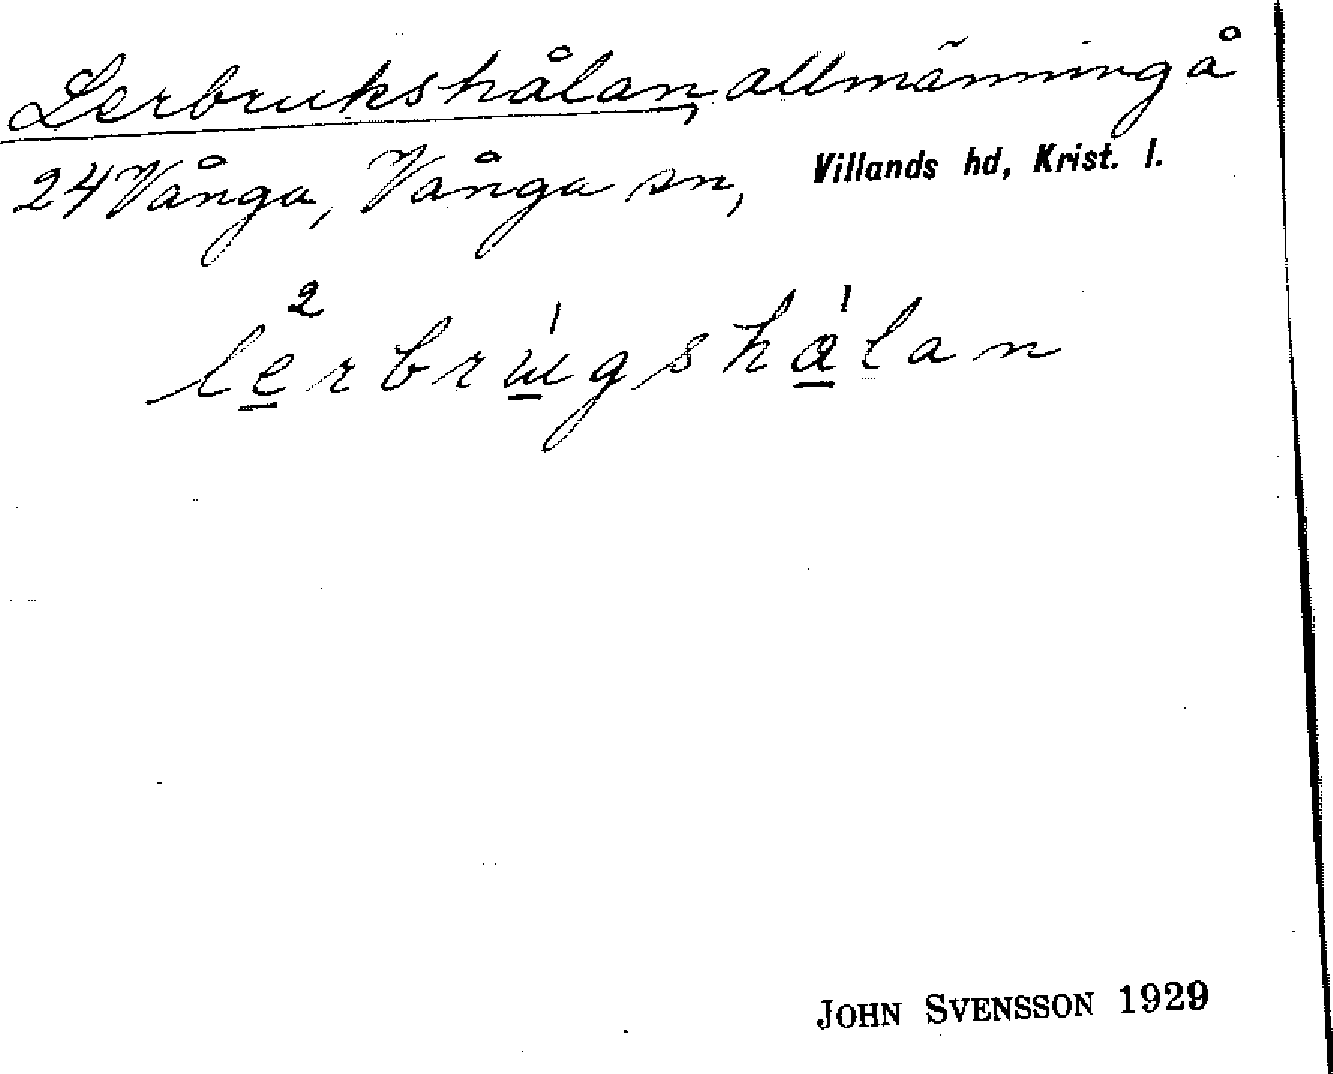 Lerbrukshålan, allmänning å
24 Vånga, Vånga sn, Villands hd, Krist. l.
lerbrugshålan
JOHN SVENSSON 1929